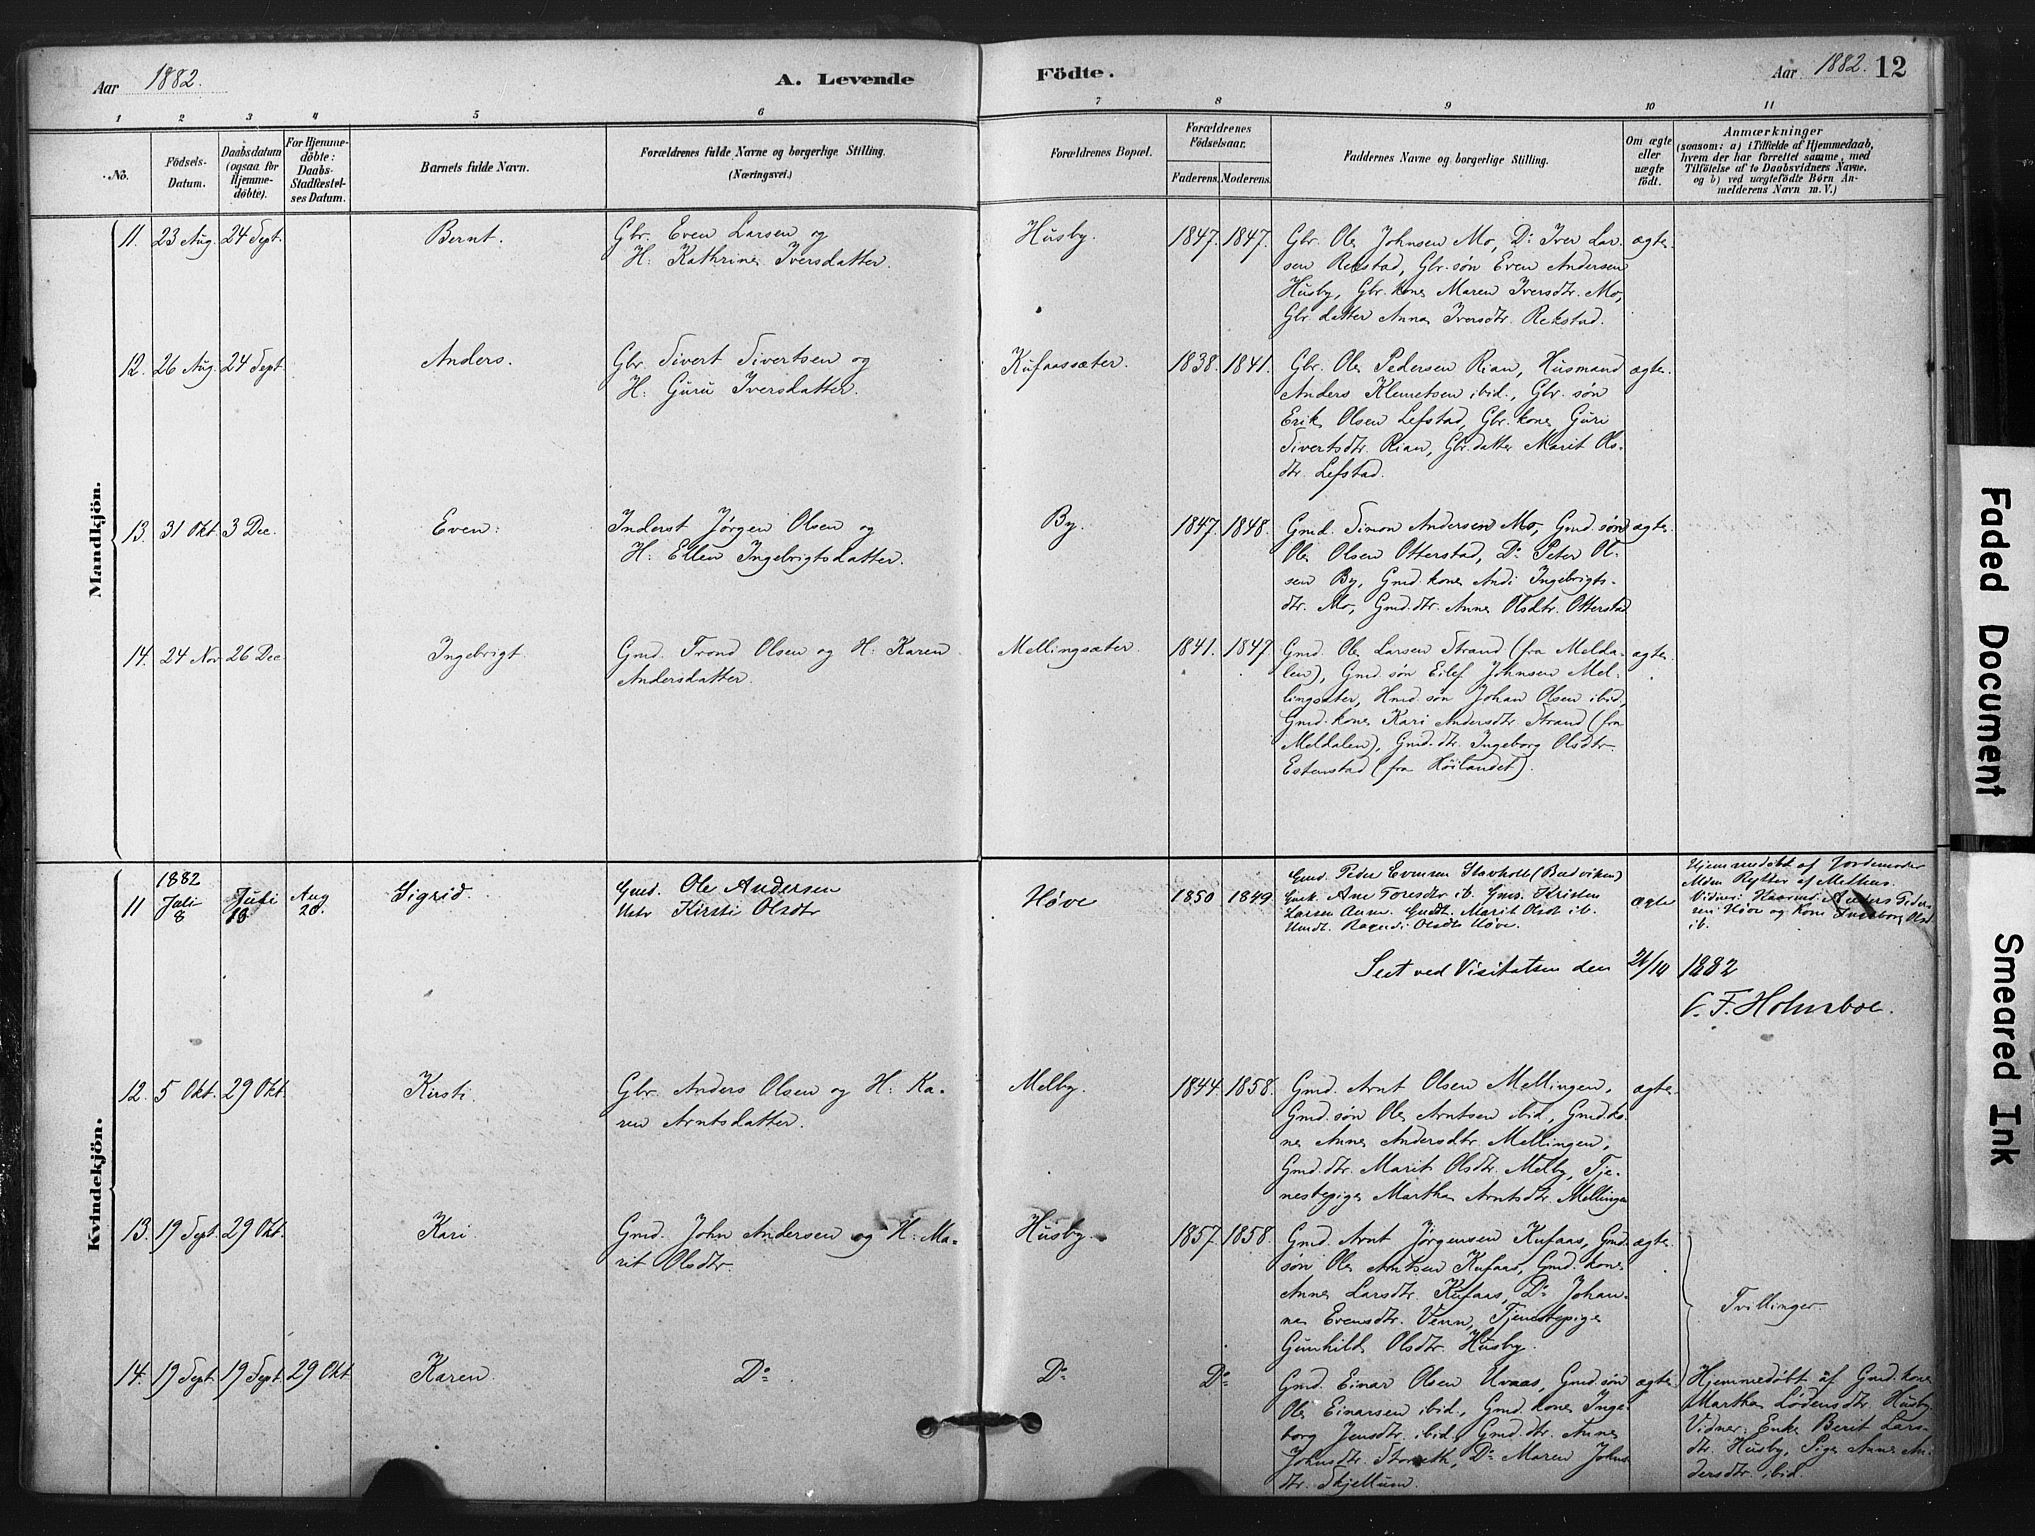 Aar 1882.
A. Levende
Födte.
Aar 1882. 12
1 2 3 4 5 6 7 8 9 10 11
No.
Födsels-
Datum.
Daabsdatum
(ogsaa for
Hjemme-
döbte).
For Hjemme-
döbte:
Daabs-
Stadfæstel-
ses Datum.
Barnets fulde Navn.
Forældrenes fulde Navne og borgerlige Stilling.
(Næringsvei.)
Forældrenes Bopæl.
Forældrenes
Födselsaar.
Faderens. Moderens.
Faddernes Navne og borgerlige Stilling.
Om ægte
eller
uægte
födt.
Anmærkninger
(saasom: a) i Tilfælde af Hjemmedaab,
hvem der har forrettet samme, med
Tilföielse af to Daabsvidners Navne,
og b) ved uægtefödte Börn An-
melderens Navn m. V.)
Mandkjön.
11. 23 Aug. 24 Sept. Bernt.
Gbr. Even Larsen og
H: Kathrine Iversdatter.
Husby. 1847. 1847.
Gbr. Ole Johnsen Mo, Do Iver Lar-
sen Rekstad, Gbr. søn Even Andersen
Husby, Gbr. kone Maren Iversdtr. Mo,
Gbr. datter Anna Iversdtr. Rekstad.
ægte.
12. 26 Aug. 24 Sept. Anders.
Gbr. Sivert Sivertsen og
H: Guru Iversdatter.
Kufaassæter. 1838. 1841.
Gbr. Ole Pedersen Rian, Husmand
Anders Klemetsen ibid., Gbr. søn
Erik Olsen Lefstad, Gbr. kone Guri
Sivertsdtr. Rian, Gbr. datter Marit Ols-
dtr. Lefstad.
ægte.
13. 31 Okt. 3 Dec. Even.
Inderst Jørgen Olsen og
H: Ellen Ingebrigtsdatter.
By. 1847. 1848.
Gmd. Simon Andersen Mo, Gmd. søn
Ole Olsen Otterstad, Do Peter Ol-
sen By, Gmd. kone Andi Ingebrigts-
dtr. Mo, Gmd. dtr. Anne Olsdtr. Otterstad
ægte.
14. 24 Nov 26 Dec Ingebrigt.
Gmd. Trond Olsen og H: Karen
Andersdatter.
Mellingsæter. 1841. 1847.
Gmd. Ole Larsen Strand (fra Melda-
len), Gmd. søn Eilef Johnsen Mel-
lingsæter, Hmd. søn Johan Olsen ibid,
Gmd. kone Kari Andersdtr. Strand (fra
Meldalen), Gmd. dtr. Ingeborg Olsdtr.
Estenstad (fra Høilandet).
ægte.
Kvindekjön.
1882
11 Juli 8 Juli 13 Aug 20. Sigrid.
Gmd. Ole Andersen
Kirsti Olsdtr
Høve 1850 1849
Gmd. Peder Evensen Stavholt (Budviken)
Ane Toresdtr ib. Kristen
Larsen Marit Olsdt ib.
Olsdtr Høve.
ægte
Hjemmedøbt af Jordemoder
Vidner: Anders
Høve og Kone Ingeborg Olsd
ib.
Seet ved Visitatsen den 21/10 1882
C. F. Holmboe.
12. 5 Okt. 29 Okt. Kirsti.
Gbr. Anders Olsen og H: Ka-
ren Arntsdatter.
Melby. 1844. 1858.
Gmd. Arnt Olsen Mellingen,
Gmd. søn Ole Arntsen ibid., Gmd. ko-
ne Anne Andersdtr. Mellingen,
Gmd. dtr. Marit Olsdtr. Melby, Tje-
nestepige Martha Arntsdtr. Mellingen
ægte.
13. 19 Sept. 29 Okt. Kari.
Gmd. John Andersen og H: Ma-
rit Olsdtr.
Husby. 1857. 1858.
Gmd. Arnt Jørgensen Kufaas, Gmd.
søn Ole Arntsen Kufaas, Gmd. kone
Anne Larsdtr. Kufaas, Do Johan-
na Evensdtr. Venn, Tjenestepige
Gunhild Olsdtr. Husby.
ægte.
Tvillinger.
14. 19 Sept. 19 Sept. 29 Okt. Karen. Do Do Do
Gmd. Einar Olsen Uvaas, Gmd. søn
Ole Einarsen ibid., Gmd. kone Inge-
borg Jensdtr. ibid., Gmd. dtr. Anne
Johnsdtr. Do Maren Johns-
dtr. Skjellum.
ægte.
Hjemmedøbt af Gmd. kone
Martha Lødensdtr. Husby
Vidner: Enke Berit Lars-
dtr. Husby, Pige Anne An-
dersdtr. ibid.
Faded Document
Smeared Ink